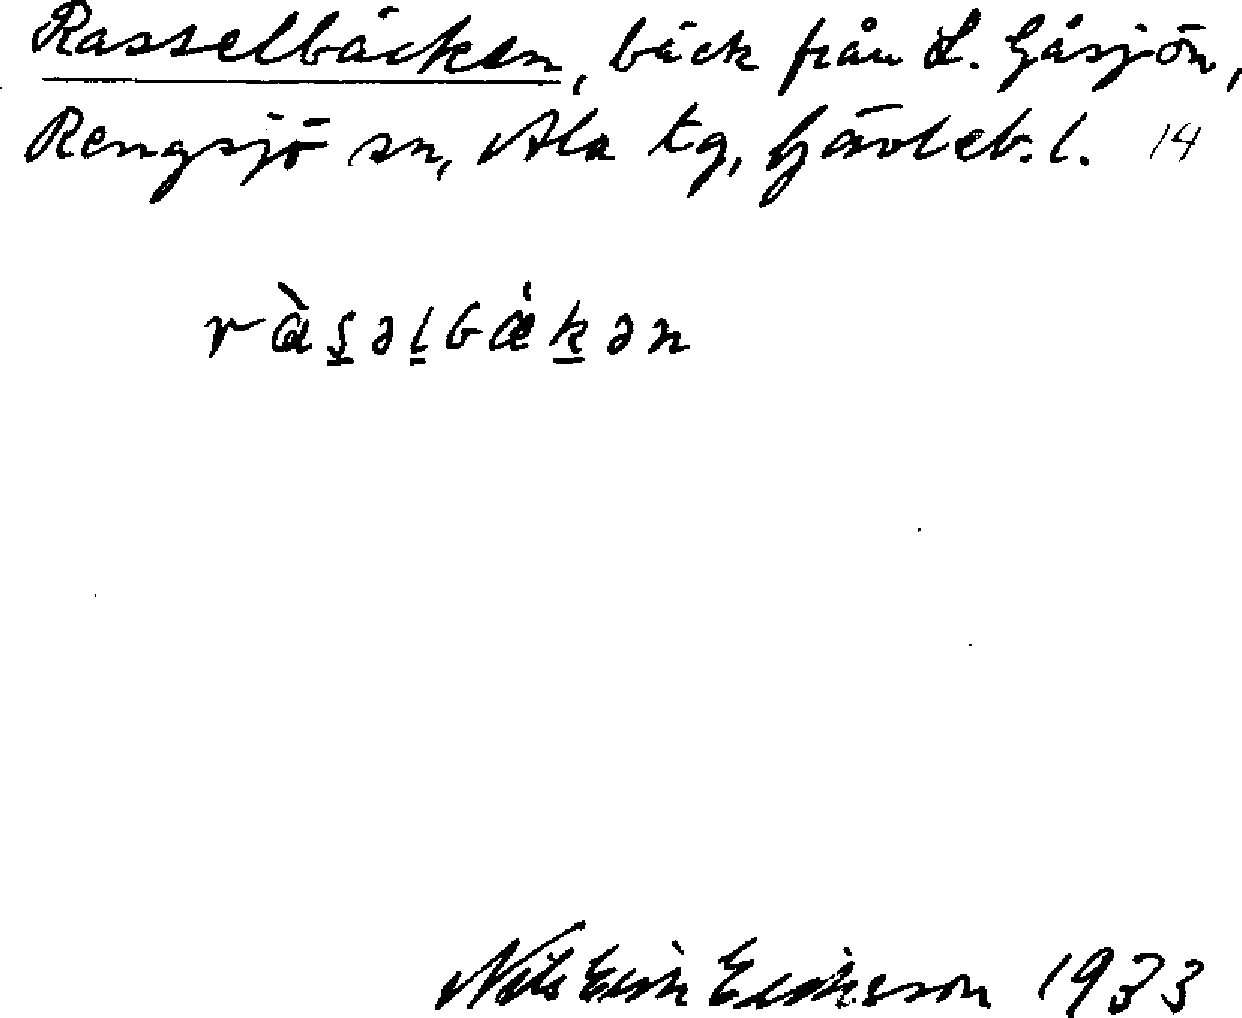 Rasselbäcken, bäck från L. Gåsjön,
Rengsjö sn, Ala tg, Gävleb. l. 14
ràs̠əl̠bǽk̠ən
Nils Erik Eriksson 1933